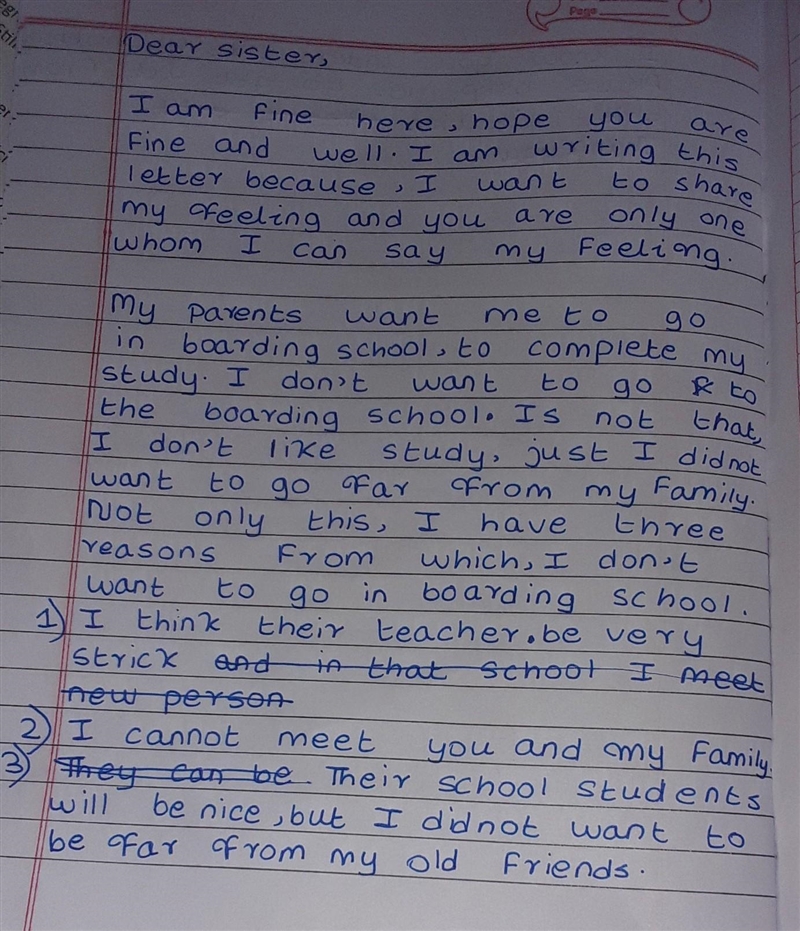 Page
Dear sister,
I am fine here, hope you are
fine and well. I am writing this
letter because, I want to share
my feeling and you are only one
whom I can say my feeliong.
My parents want me to go
in boarding school, to complete my
study. I don't want to go to
the boarding school. Is not that,
I don't like study, just I didnot
want to go far from my family.
Not only this, I have three
reasons from which, I don't
want to go in boarding school.
1) I think their teacher.be very
strick and in that school I meet
new person
2) I cannot meet you and my family.
3) They can be. Their school students
will be nice, but I didnot want to
be far from my old friends.